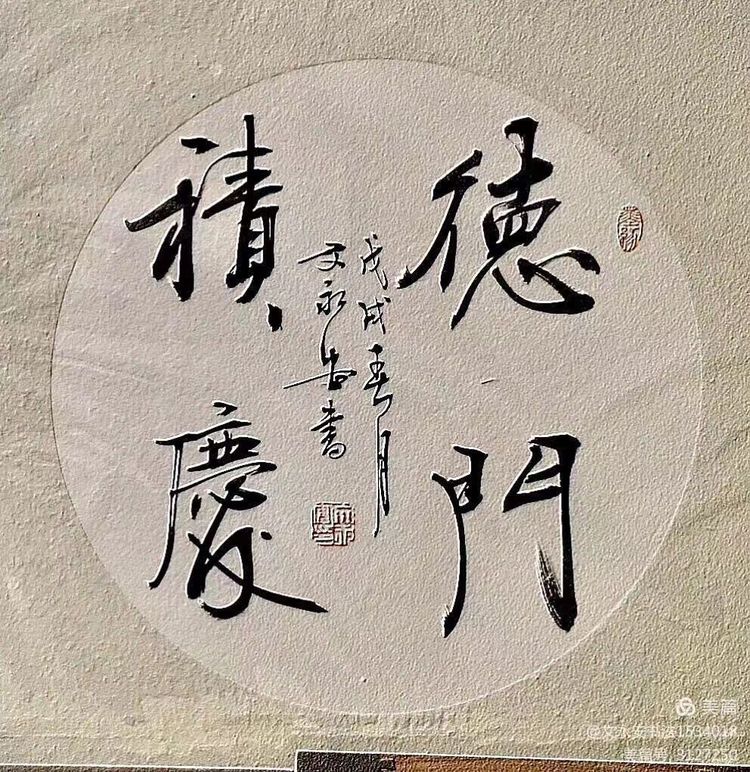 德門
積慶
戊戌春月
文永安書
美篇
@文永安书法1534018
美篇号 3127250